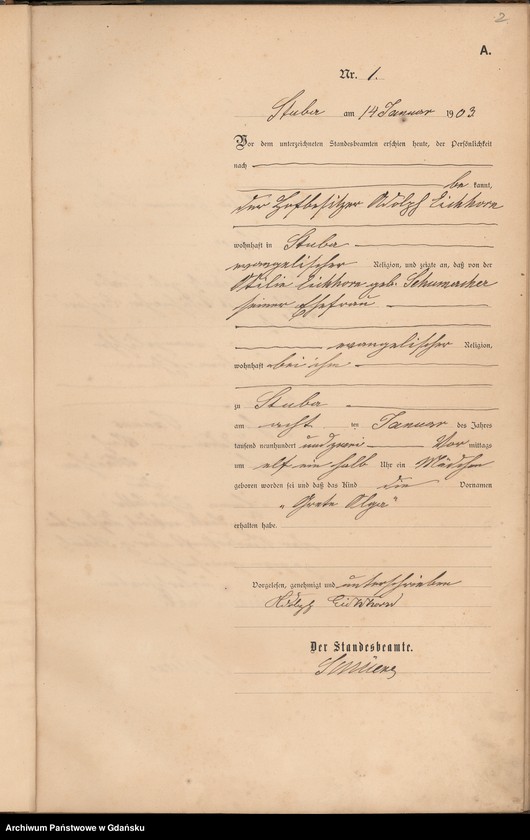 2
A.
Nr. 1.
Stuba am 14 Januar 1903
Vor dem unterzeichneten Standesbeamten erschien heute, der Persönlichkeit
nach
be kannt,
der Hofbesitzer Adolph Eichhorn
wohnhaft in Stuba
evangelischer Religion, und zeigte an, daß von der
Otilie Eichhorn geb. Schumacher
seiner Ehefrau
evangelischer Religion,
wohnhaft bei ihm
zu Stuba
am acht ten Januar des Jahres
tausend neunhundert und zwei Vor mittags
um elf ein halb Uhr ein Mädchen
geboren worden sei und daß das Kind die Vornamen
„Grete Olga"
erhalten habe.
Vorgelesen, genehmigt und unterschrieben
Adolph Eichhorn
Der Standesbeamte.
Archiwum Państwowe w Gdańsku